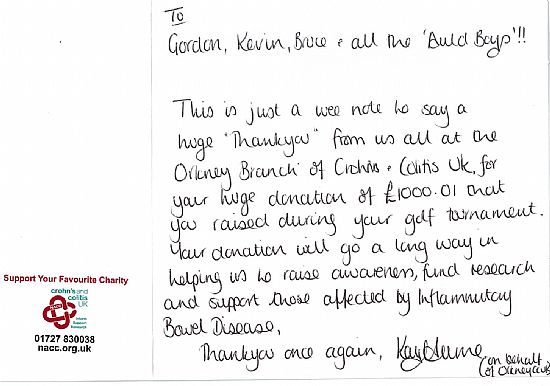 To
Gordon, Kevin, Bruce & all the 'Auld Boys'!!
This is just a wee note to say a
huge "Thankyou" from us all at the
Orkney Branch of Crohns & Colitis Uk, for
your huge donation of £1000.01 that
you raised during your golf tournament.
Your donation will go a long way in
helping us to raise awareness, fund research
and support those affected by Inflammatory
Bowel Disease.
Thankyou once again,
(on behalf
of
Support Your Favourite Charity
crohn's and
colitis
UK
nacc
Inform
Support
Research
01727 830038
nacc.org.uk